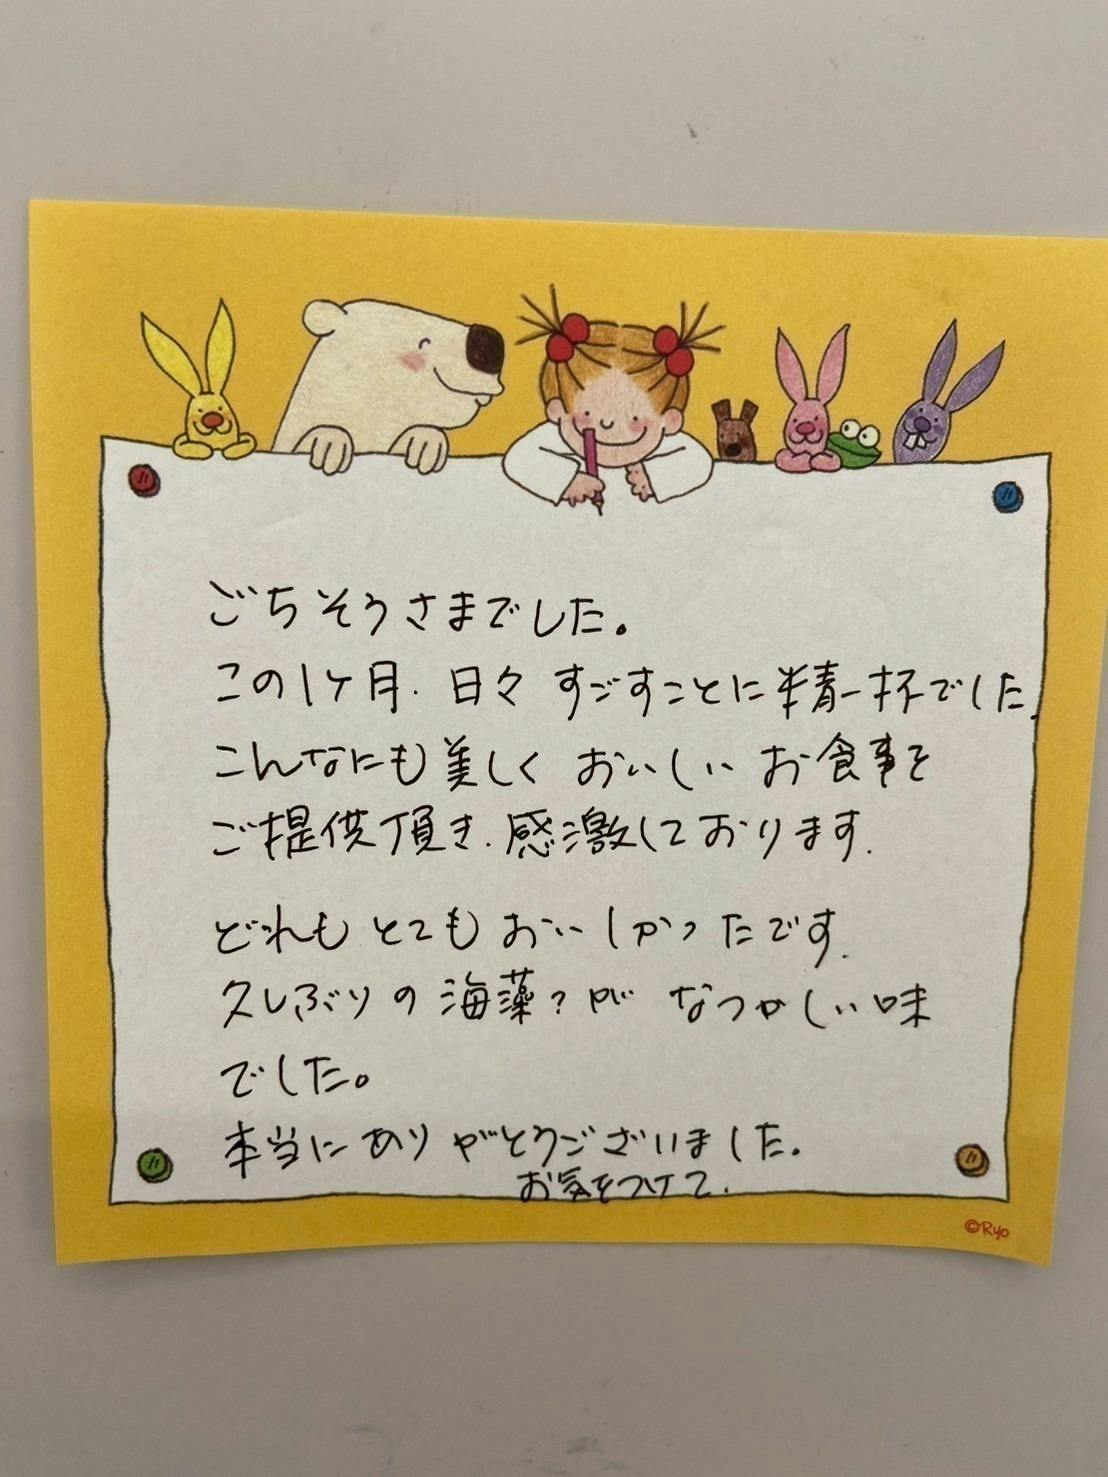 ごちそうさまでした。
この1ヶ月、日々すごすことに精一杯でした。
こんなにも美しくおいしいお食事を
ご提供頂き、感激しております。
どれもとてもおいしかったです。
久しぶりの海藻?がなつかしい味
でした。
本当にありがとうございました。
お気をつけて。
©Ryo